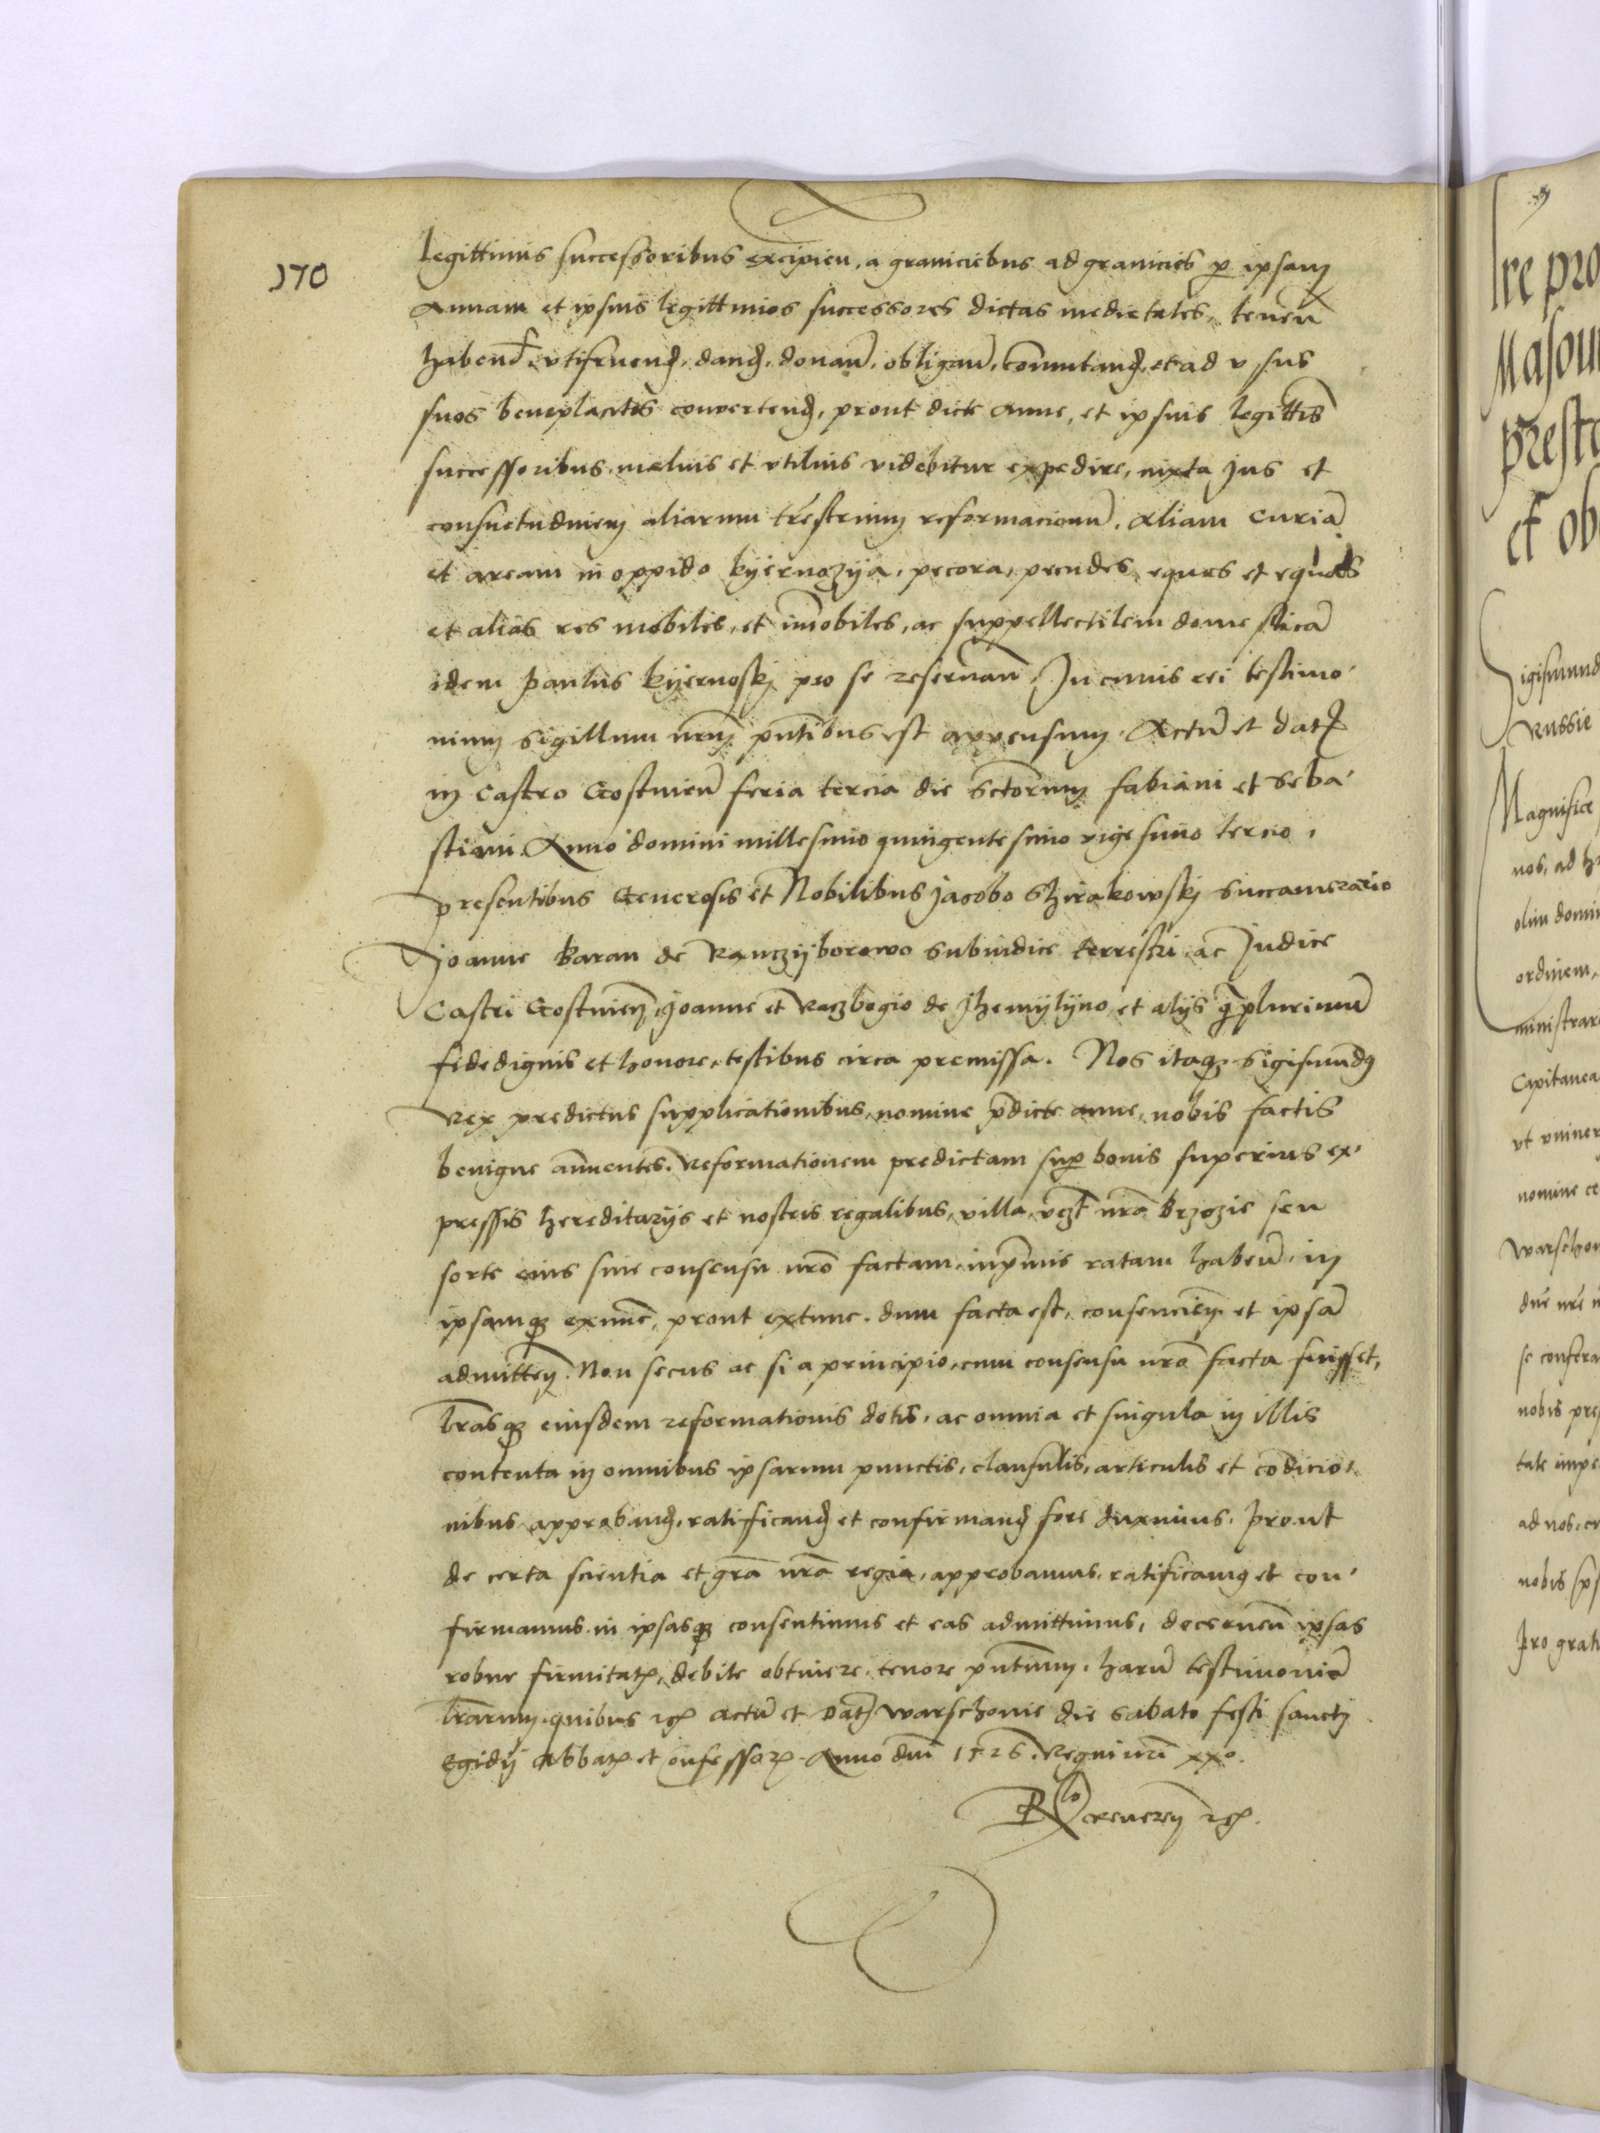 170
legittimis successoribus excipien, a graniciebus ad granicies p ipsam
Annam et ipsius legittimos successores dictas medietates, tenen
habend, vtifruend, dand, donan, obligan, commutand, et ad vsus
suos beneplacitos convertend, prout dicte Anne, et ipsius legittis
successoribus, melius et vtilius videbitur expedire, iuxta Jus et
consuetudinem aliarum trestrium reformacionu, Aliam curia
et aream in oppido kyernozya, pecora, pecudes, equos et equas
et alias res mobiles, et imobiles, ac suppellectilem domestica
idem paulus kyernoskj pro se reservan, In cuius rei testimo
nium sigillum nrum pntibus est appensum Actu et dat
in castro Gostinien feria tercia die sctorum fabiani et seba
stiani Anno domini millesimo quingentesimo vigesimo tercio,
presentibus Generosis et Nobilibus Jacobo Szirakowskj succamerario
Joanne Baran de Ranczyborowo subiudice terrestri ac Judice
Castri Gostinien, Joanne et Raczbogio de Jhemylyno et alys qplurimu
fidedignis et honore, testibus circa premissa. Nos itaq Sigismund9
Rex predictus supplicationibus, nomine pdicte anne, nobis factis
benigne annuentes. Reformationem predictam sup bonis superius ex
pressis hereditarys et nostris regalibus, villa, vezt nra Brzozie seu
sorte eius sine consensu nro factam, inprimis ratam haben, in
ipsamq exnunc, prout extunc. dum facta est, consencien et ipsa
admitten. Non secus ac si a principio, cum consensu nro facta fuisset,
lrasq eiusdem reformationis dotis, ac omnia et singula in illis
contenta in omnibus ipsarum punctis, clausulis, articulis et codicio
nibus approband, ratifficand et confirmand fore duximus. Prout
de certa scientia et gra nra regia, approbamus, ratificam9 et con
firmamus in ipsasq consentimus et eas admittimus, decernen ipsas
robur firmitat, debite obtinere, tenore pntium, haru testimonio
lrarum, quibus etc Actu et Dat Warschovie die Sabato festi sanctj
Egidy Abbat et cofessor. Anno dni 1526. Regni nri xxo.
Rlo Reveren etc.